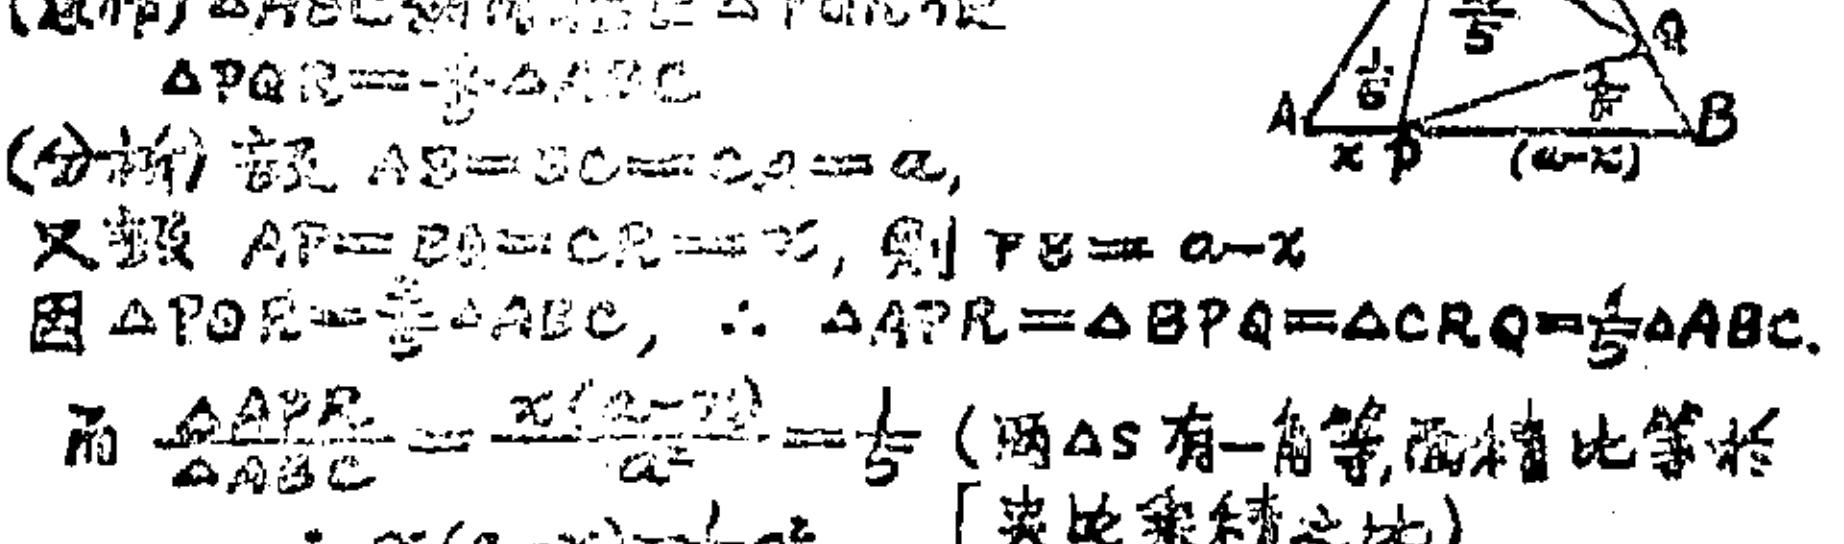 △ABC △PQR
△PQR=-△ABC
(分析) 設 AB=BC=CA=a,
又設 AP=BQ=CR=x, 則 PB=a-x
因 △PQR=2/5△ABC, ∴ △APR=△BPQ=△CRQ=1/5△ABC.
而 △APR/△ABC = x(a-x)/a² = 1/5 (兩△S 有一角等,面積比等於
x(a-x)=a² [夾比乘積之比)
5
Q
1/5
A B
x P (a-x)